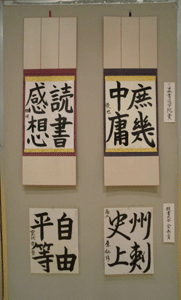 庶幾
中庸
読書
感想
州刺
史上
自由
平等